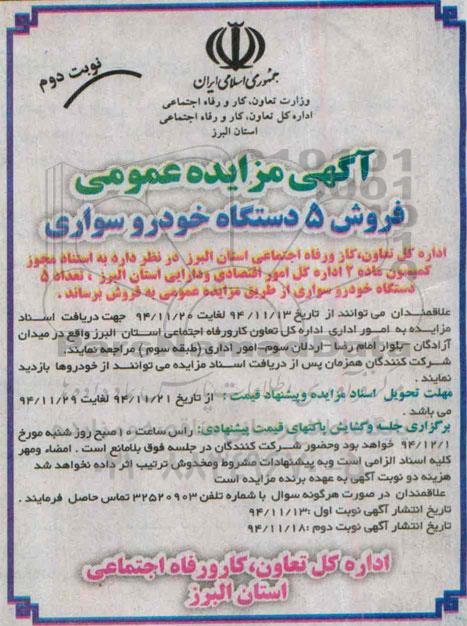 نوبت دوم
جمهوری اسلامی ایران
وزارت تعاون، کار و رفاه اجتماعی
اداره کل تعاون، کار و رفاه اجتماعی
استان البرز
آگهی مزایده عمومی
فروش ۵ دستگاه خودرو سواری
اداره کل تعاون،کار ورفاه اجتماعی استان البرز در نظر دارد به استناد مجوز
کمیسیون ماده ۲ اداره کل امور اقتصادی ودارایی استان البرز ، تعداد ۵
دستگاه خودرو سواری از طریق مزایده عمومی به فروش برساند .
علاقمندان می توانند از تاریخ ۹۴/۱۱/۱۳ لغایت ۹۴/۱۱/۲۰ جهت دریافت اسناد
مزایده به امور اداری اداره کل تعاون کارورفاه اجتماعی استان البرز واقع در میدان
آزادگان - بلوار امام رضا - اردلان سوم- امور اداری (طبقه سوم ) مراجعه نمایند.
شرکت کنندگان همزمان پس از دریافت اسناد مزایده می توانند از خودروها بازدید
نمایند .
مهلت تحویل اسناد مزایده و پیشنهاد قیمت : از تاریخ ۹۴/۱۱/۲۱ لغایت ۹۴/۱۱/۲۹
می باشد .
برگزاری جلسه وگشایش پاکتهای قیمت پیشنهادی: رأس ساعت ۱۰صبح روز شنبه مورخ
۹۴/۱۲/۱ خواهد بود وحضور شرکت کنندگان در جلسه فوق بلامانع است . امضاء ومهر
کلیه اسناد الزامی است وبه پیشنهادات مشروط ومخدوش ترتیب اثر داده نخواهد شد
هزینه دو نوبت آگهی به عهده برنده مزایده است
علاقمندان در صورت هرگونه سوال با شماره تلفن ۳۲۵۲۰۹۰۳ تماس حاصل فرمایند .
تاریخ انتشار آگهی نوبت اول :۹۴/۱۱/۱۳
تاریخ انتشار آگهی نوبت دوم :۹۴/۱۱/۱۸
اداره کل تعاون،کارورفاه اجتماعی
استان البرز